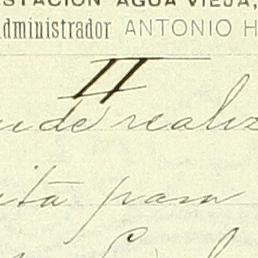 ESTACIÓN AGUA VIEJA,
Administrador ANTONIO H
II
ude realiz
ita para